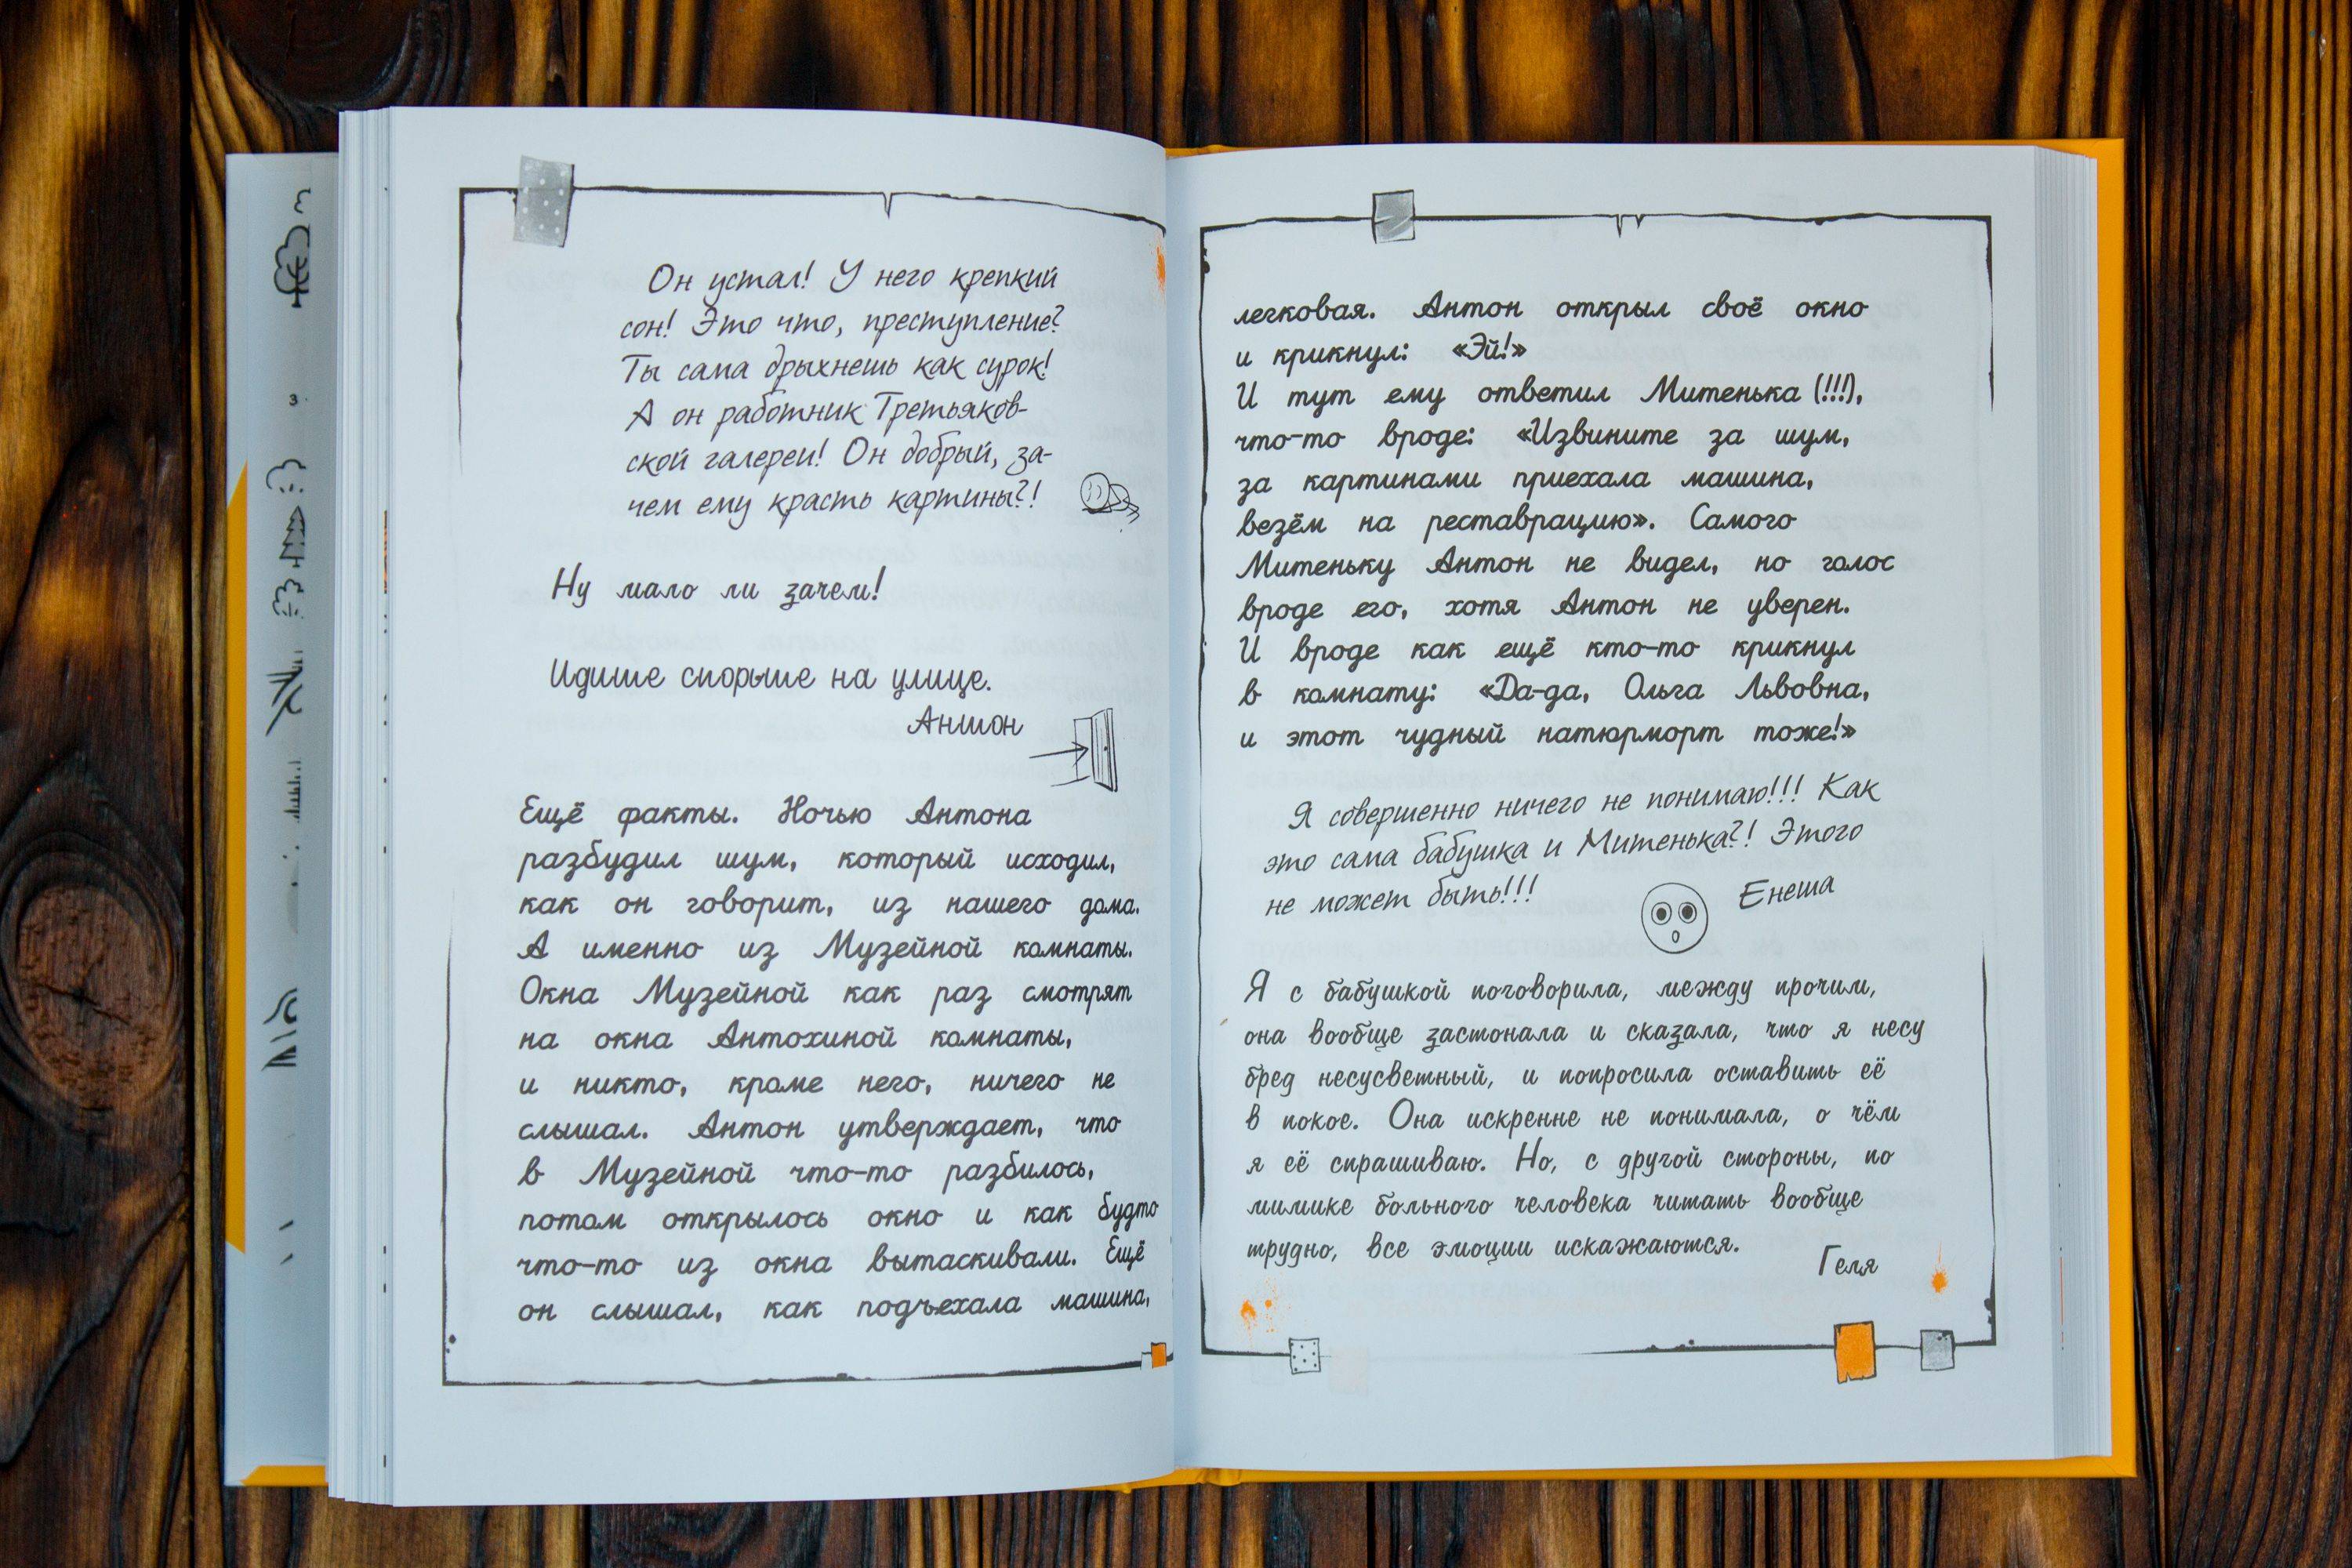 Он устал! У него крепкий
сон! Это что, преступление?
Ты сама дрыхнешь как сурок!
А он работник Третьяков-
ской галереи! Он добрый, за-
чем ему красть картины?!
Ну мало ли зачем!
Идите спорьте на улице.
Антон
Ещё факты. Ночью Антона
разбудил шум, который исходил,
как он говорит, из нашего дома.
А именно из Музейной комнаты.
Окна Музейной как раз смотрят
на окна Антохиной комнаты,
и никто, кроме него, ничего не
слышал. Антон утверждает, что
в Музейной что-то разбилось,
потом открылось окно и как будто
что-то из окна вытаскивали. Ещё
он слышал, как подъехала машина,
легковая. Антон открыл своё окно
и крикнул: «Эй!»
И тут ему ответил Митенька (!!!),
что-то вроде: «Извините за шум,
за картинами приехала машина,
везём на реставрацию». Самого
Митеньку Антон не видел, но голос
вроде его, хотя Антон не уверен.
И вроде как ещё кто-то крикнул
в комнату: «Да-да, Ольга Львовна,
и этот чудный натюрморт тоже!»
Я совершенно ничего не понимаю!!! Как
это сама бабушка и Митенька?! Этого
не может быть!!!
Енеша
Я с бабушкой поговорила, между прочим,
она вообще застонала и сказала, что я несу
бред несусветный, и попросила оставить её
в покое. Она искренне не понимала, о чём
я её спрашиваю. Но, с другой стороны, по
мимике больного человека читать вообще
трудно, все эмоции искажаются.
Геля